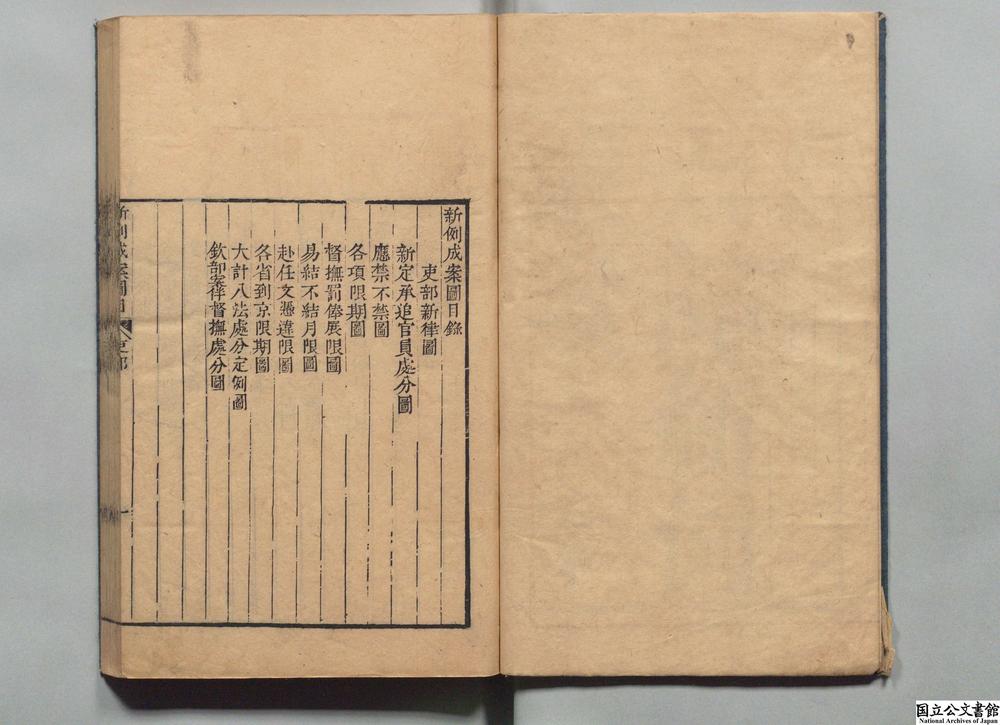 新例成案圖目錄
吏部新律圖
新定承追官員處分圖
應禁不禁圖
各項限期圖
督撫罰俸展限圖
易結不結月限圖
赴任文憑違限圖
各省到京限期圖
大計八法處分定例圖
欽部案件督撫處分圖
新例成案圖目
吏部
一
国立公文書館
National Archives of Japan